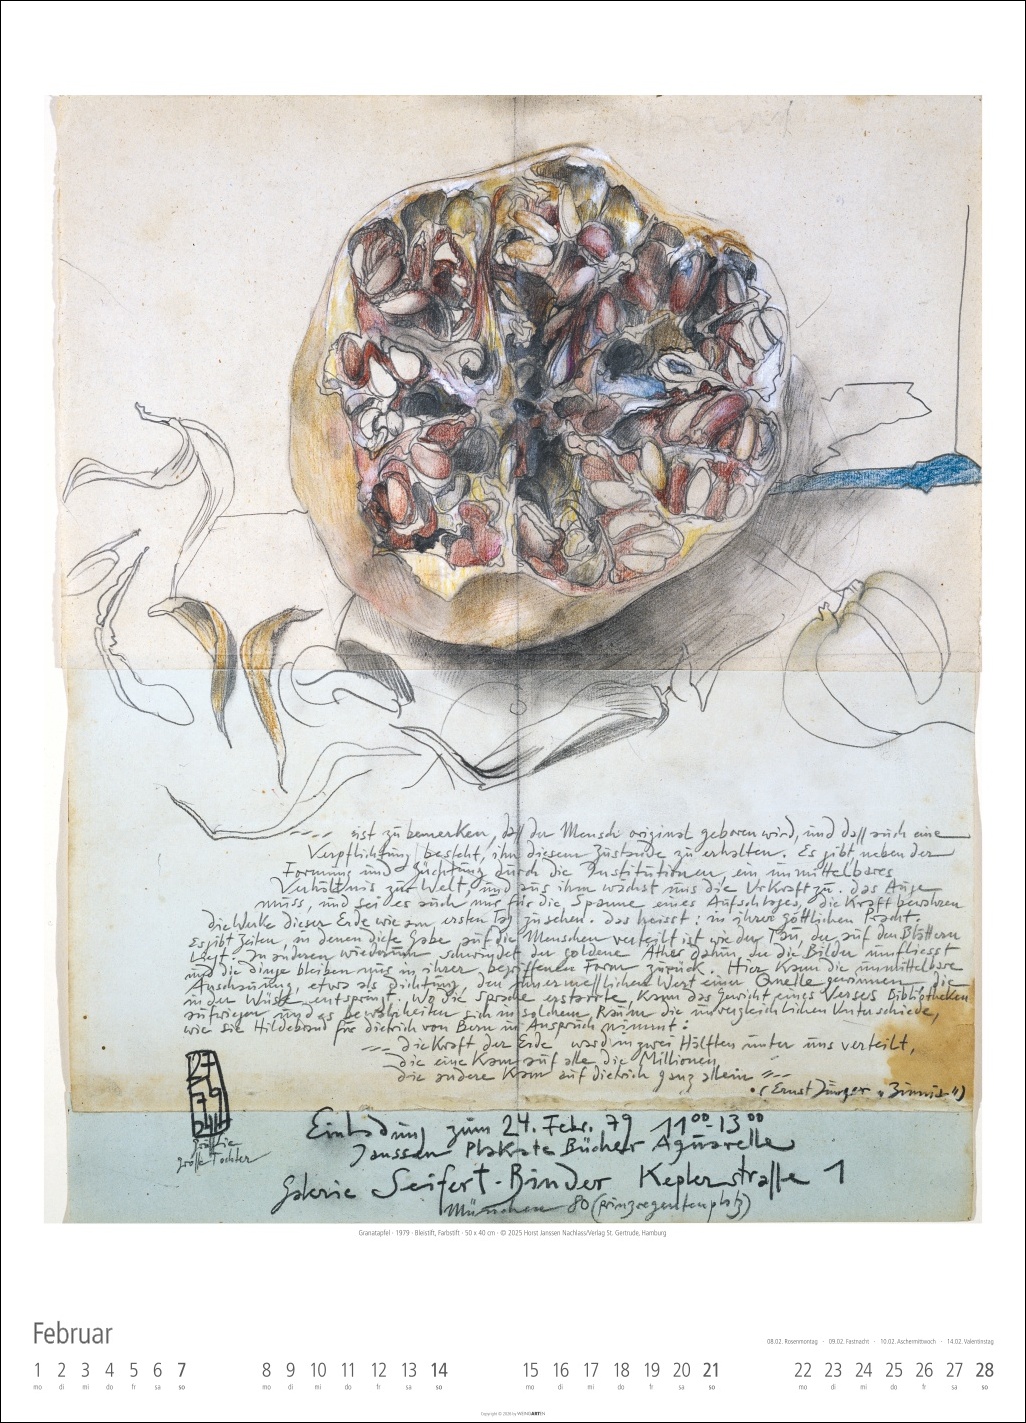 ---- ist zu bemerken, daß der Mensch original geboren wird, und daß auch eine
Verpflichtung besteht, ihn diesem Zustande zu erhalten. Es gibt neben der
Formung und Züchtung durch die Institutionen, ein unmittelbares
Verhältnis zur Welt, und aus ihm wächst uns die Urkraft zu. das Auge
muss, und sei es auch nur für die Spanne eines Aufschlages, die Kraft bewahren
die Werke dieser Erde wie am ersten Tag zu sehen. das heisst: in ihrer göttlichen Pracht.
Es gibt Zeiten, in denen diese Gabe auf die Menschen verteilt ist wie der Tau, der auf den Blättern
liegt. In anderen wiederum schwindet der goldene Äther dahin, der die Bilder umfliesst
und die dinge bleiben uns in ihrer begriffenen Form zurück. Hier kann die unmittelbare
Anschauung, etwa als Dichtung, den Wert einer Quelle gewinnen die
in der Wüste entspringt. Wo die Sprache erstarrte, kann das Gewicht eines Verses Bibliotheken
aufwiegen und es bewahrheiten sich in solchem Raum die unvergleichlichen Unterschiede,
wie sie Hildebrand für dietrich von Bern in Anspruch nimmt:
--- die Kraft der Erde ward in zwei Hälften unter uns verteilt,
die eine kam auf alle die Millionen
die andere kam auf dietrich ganz allein ---
(Ernst Jünger
27
2
79
große Tochter
Einladung zum 24. Febr. 79 11⁰⁰-13⁰⁰
Janssen Plakate Bücher Aquarelle
Galerie Seifert-Binder Keplerstraße 1
München 80 (prinzregentenplatz)
Granatapfel · 1979 · Bleistift, Farbstift · 50 x 40 cm · © 2025 Horst Janssen Nachlass/Verlag St. Gertrude, Hamburg
Februar
08.02. Rosenmontag · 09.02. Fastnacht · 10.02. Aschermittwoch · 14.02. Valentinstag
1 2 3 4 5 6 7 8 9 10 11 12 13 14 15 16 17 18 19 20 21 22 23 24 25 26 27 28
mo di mi do fr sa so mo di mi do fr sa so mo di mi do fr sa so mo di mi do fr sa so
Copyright © 2026 by WEINGARTEN